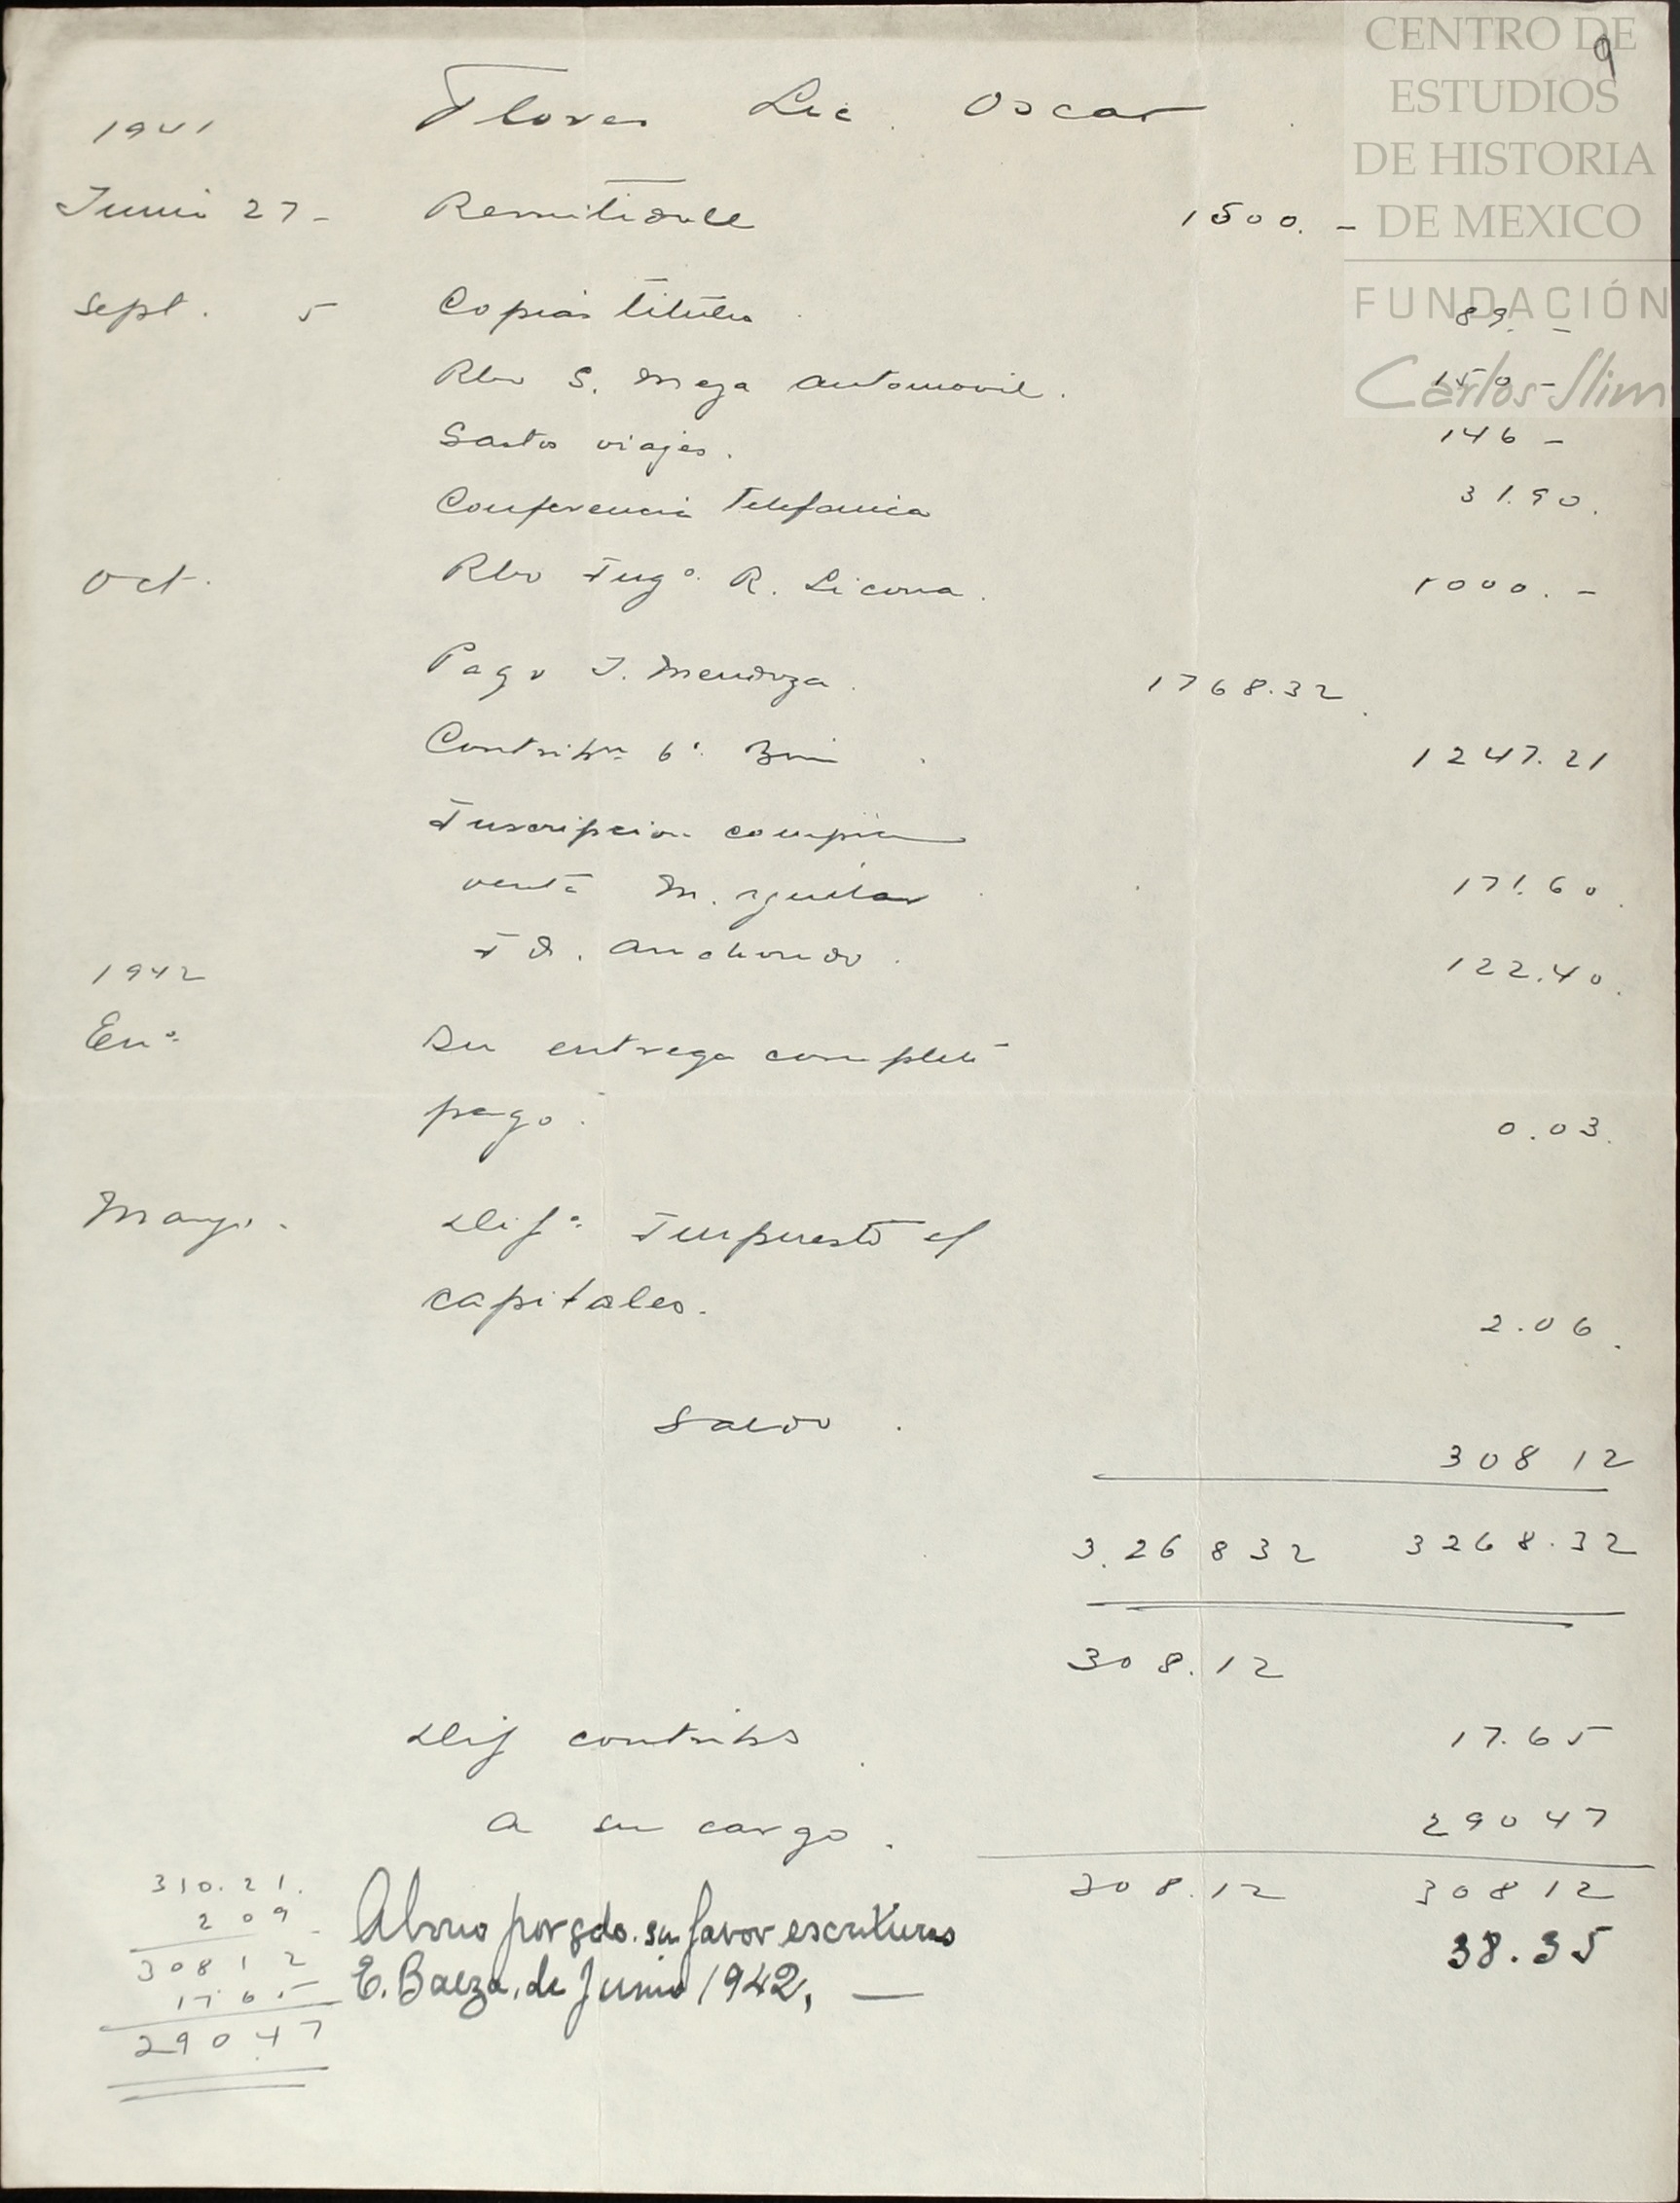 CENTRO DE
ESTUDIOS
DE HISTORIA
DE MEXICO
FUNDACIÓN
Carlos Slim
9
Flores Lic. Oscar
1941
Junio 27 - Remitidole 1500. -
Sept. 5 Copias titulos 89. -
Rbo S. Meza automovil. 150 -
Gastos viajes. 146 -
Conferencia Telefonica 31.90.
Oct. Rbo Ingo. R. Licona. 1000. -
Pago J. Mendoza. 1768.32
Contribn 6o. Bim 1247.21
Inscripcion compra
venta M. Aguilar 171.60
I D. Anchondo. 122.40
1942
Eno. Su entrega completo
pago. 0.03.
Mayo. Difa. Impuesto s/
capitales. 2.06.
Saldo. 308 12
3.268 32 3268.32
308.12
Dif contribs 17.65
a su cargo. 290 47
308.12 308 12
310.21.
2 09
308 12
17.65
290.47
Abono por sdo. su favor escrituras 38.35
E. Baeza, de Junio 1942, —